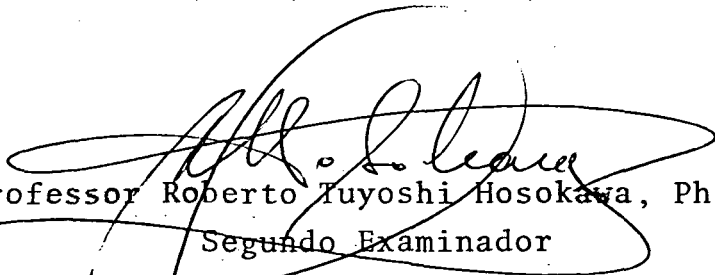 rofessor Roberto Tuyoshi Hosokawa, Ph
Segundo Examinador